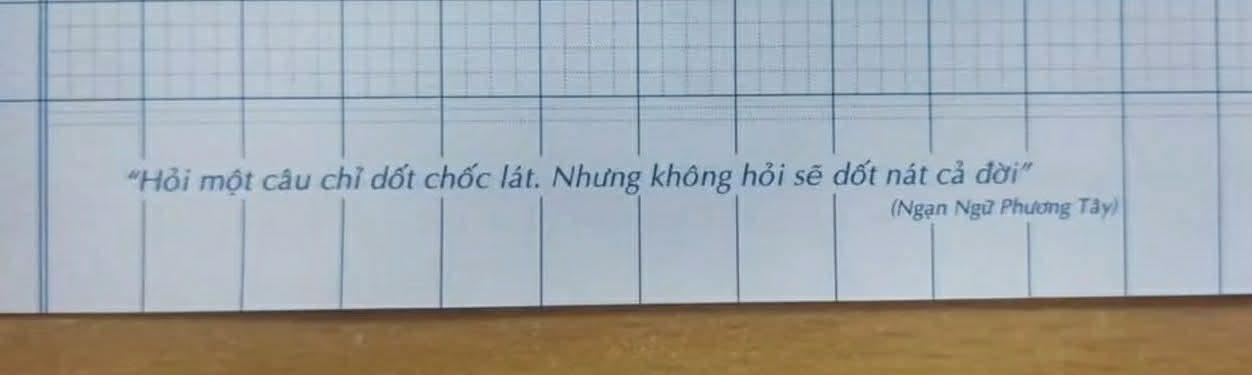 “Hỏi một câu chỉ dốt chốc lát. Nhưng không hỏi sẽ dốt nát cả đời”
(Ngạn Ngữ Phương Tây)